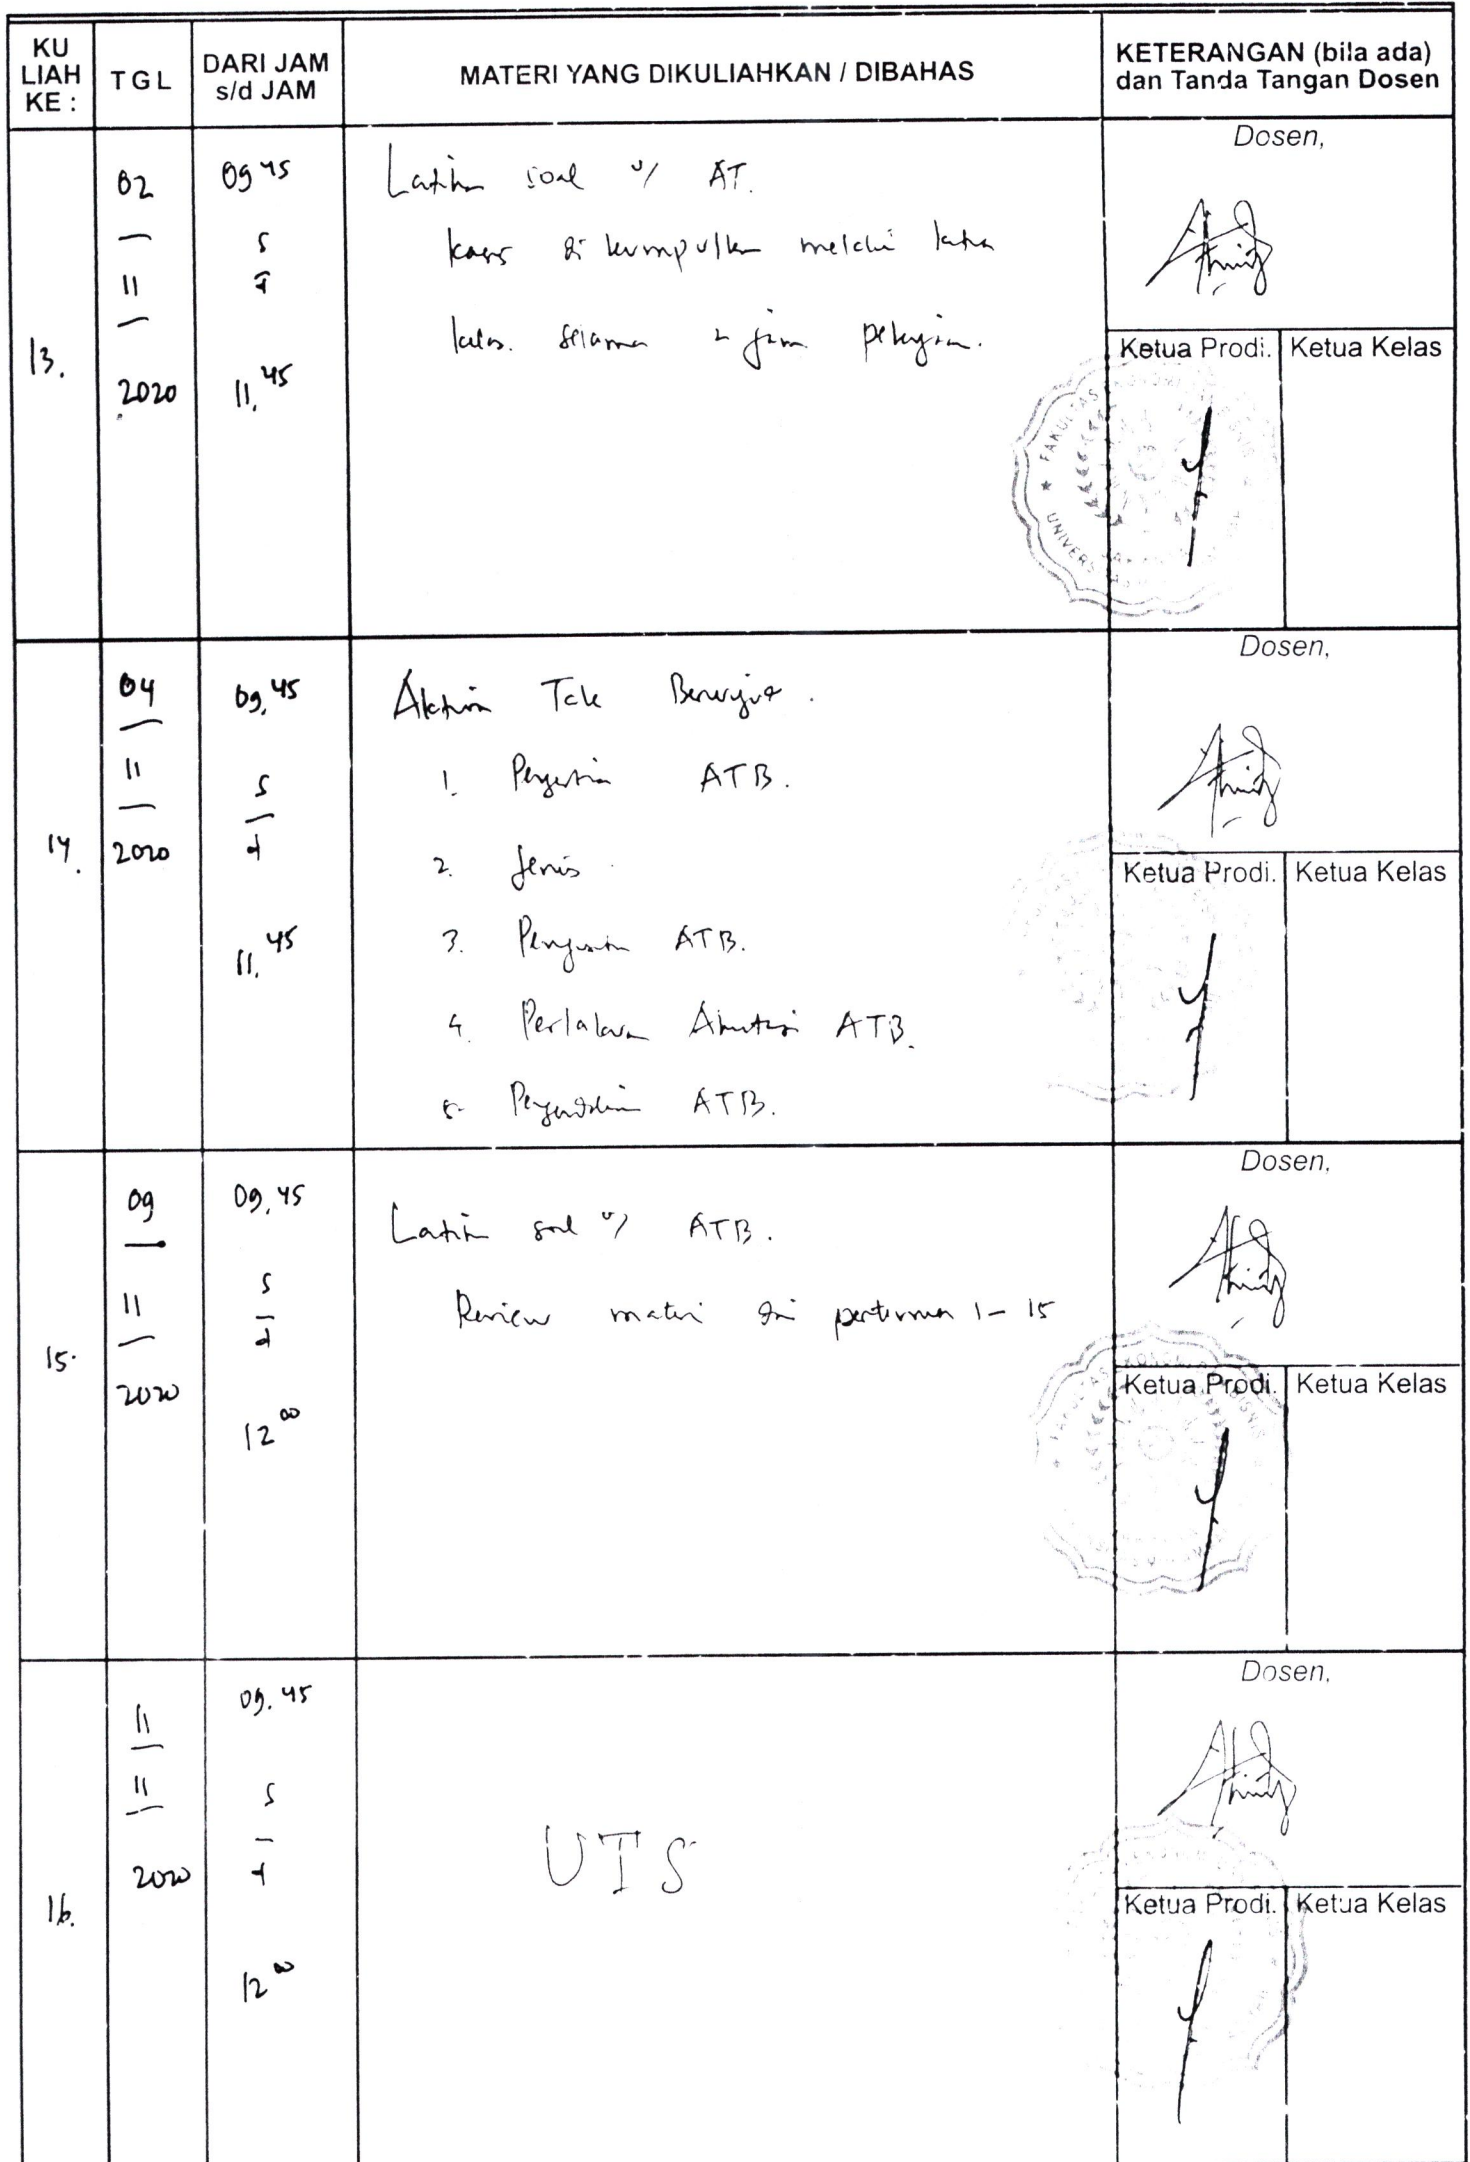 KU LIAH KE :
TGL
DARI JAM s/d JAM
MATERI YANG DIKULIAHKAN / DIBAHAS
KETERANGAN (bila ada) dan Tanda Tangan Dosen
13.
02
11
2020
09 45
s
d
11.45
Latihan soal u/ AT.
di kumpulkan
selama 2 jam
Dosen,
Ketua Prodi.
Ketua Kelas
FAKULTAS
UNIVERS
14.
04
11
2020
09.45
s
d
11.45
Aktiva Tak Berwujud.
1. Pengertian ATB.
2. Jenis
3. ATB.
4. Perlakuan Akuntansi ATB.
5. ATB.
Dosen,
Ketua Prodi.
Ketua Kelas
15.
09
11
2020
09.45
s
d
12 00
Latihan soal u/ ATB.
Review materi dari pertemuan 1 - 15
Dosen,
Ketua Prodi.
Ketua Kelas
16.
11
11
2020
09.45
s
d
12 00
UTS
Dosen,
Ketua Prodi.
Ketua Kelas